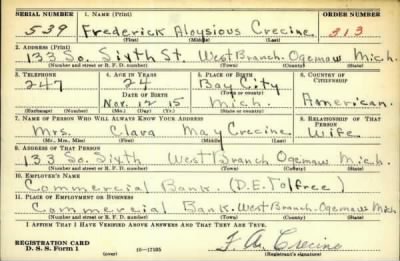 SERIAL NUMBER 1. NAME (Print) ORDER NUMBER
539 Frederick Aloysious Crecine 313
(First) (Middle) (Last)
2. ADDRESS (Print)
133 So. Sixth St. West Branch Ogemaw Mich.
(Number and street or R. F. D. number) (Town) (County) (State)
3. TELEPHONE 4. AGE IN YEARS 5. PLACE OF BIRTH 6. COUNTRY OF CITIZENSHIP
247 24 Bay City
DATE OF BIRTH (Town or county)
Nov. 12 15 Mich. American.
(Exchange) (Number) (Mo.) (Day) (Yr.) (State or country)
7. NAME OF PERSON WHO WILL ALWAYS KNOW YOUR ADDRESS 8. RELATIONSHIP OF THAT PERSON
Mrs. Clara May Crecine Wife
(Mr., Mrs., Miss) (First) (Middle) (Last)
9. ADDRESS OF THAT PERSON
133 So. Sixth West Branch Ogemaw Mich.
(Number and street or R. F. D. number) (Town) (County) (State)
10. EMPLOYER'S NAME
Commercial Bank. (D.E. Tolfree)
11. PLACE OF EMPLOYMENT OR BUSINESS
Commercial Bank. West Branch. Ogemaw Mich
(Number and street or R. F. D. number) (Town) (County) (State)
I AFFIRM THAT I HAVE VERIFIED ABOVE ANSWERS AND THAT THEY ARE TRUE.
REGISTRATION CARD
D. S. S. Form 1 (over) 16-17105 F. A. Crecine
(Registrant's signature)